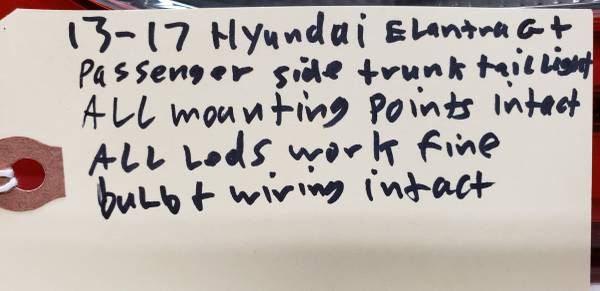 13-17 Hyundai Elantra Gt
Passenger side trunk tail Light
ALL mounting Points intact
ALL Leds work fine
bulb + wiring intact